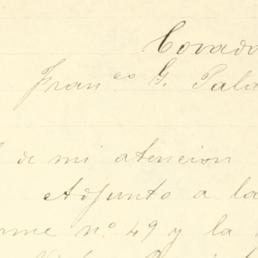 Covado
Fran.co G. Pala
de mi atencion
Adjunto a la
rme nº 49 y la